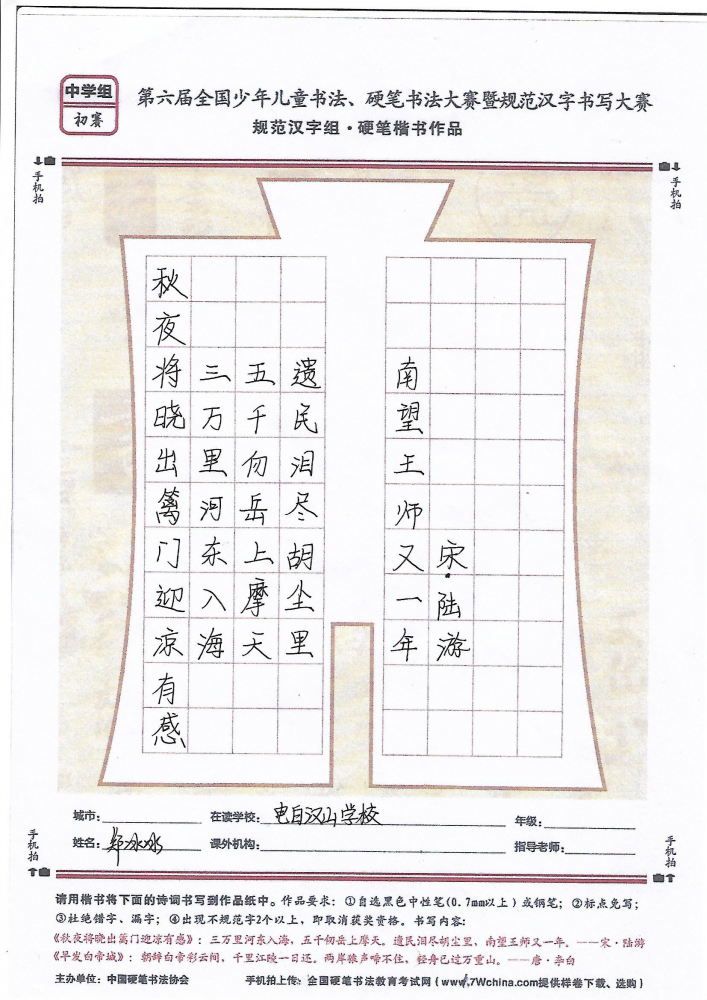 中学组
初赛
第六届全国少年儿童书法、硬笔书法大赛暨规范汉字书写大赛
规范汉字组·硬笔楷书作品
手机拍
手机拍
秋夜将晓出篱门迎凉有感
三万里河东入海
五千仞岳上摩天
遗民泪尽胡尘里
南望王师又一年
宋·陆游
城市:
在读学校: 电白汉山学校
年级:
姓名: 郑冰冰
课外机构:
指导老师:
手机拍
手机拍
请用楷书将下面的诗词书写到作品纸中。作品要求: ①自选黑色中性笔(0.7mm以上)或钢笔; ②标点免写;
③杜绝错字、漏字; ④出现不规范字2个以上, 即取消获奖资格。书写内容:
《秋夜将晓出篱门迎凉有感》: 三万里河东入海, 五千仞岳上摩天。遗民泪尽胡尘里, 南望王师又一年。——宋·陆游
《早发白帝城》: 朝辞白帝彩云间, 千里江陵一日还。两岸猿声啼不住, 轻舟已过万重山。——唐·李白
主办单位: 中国硬笔书法协会
手机拍上传: 全国硬笔书法教育考试网(www.7Wchina.com提供样卷下载、选购)